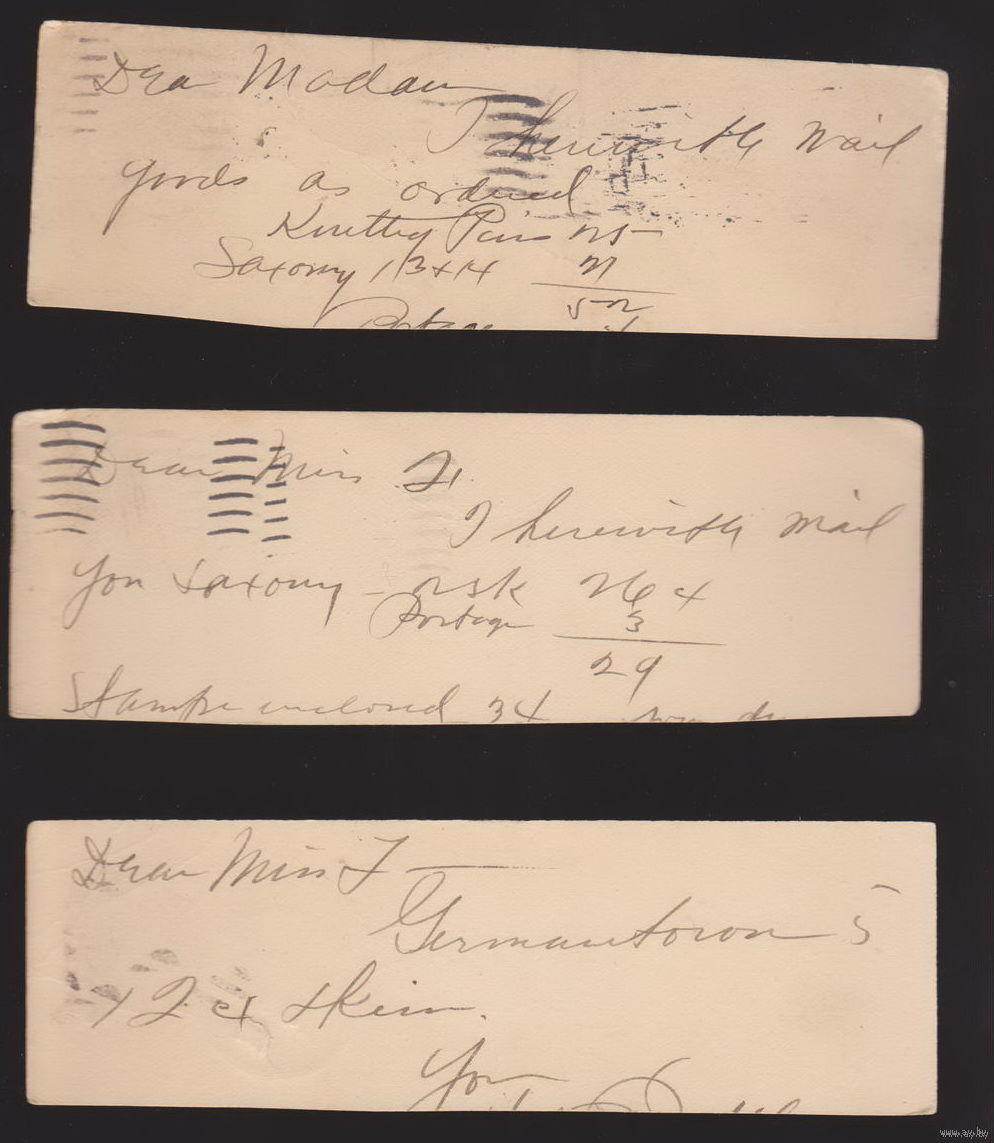 Dear Madam
I herewith mail
goods as ordered
Knitting Pins 25
Saxony 13 + 14 27
52
Postage
Dear Miss F.
I herewith mail
you Saxony - 26
Postage 3
29
Stamps enclosed 34
Dear Miss F
Germantown 5
12 ct skein.
You
www.ay.by